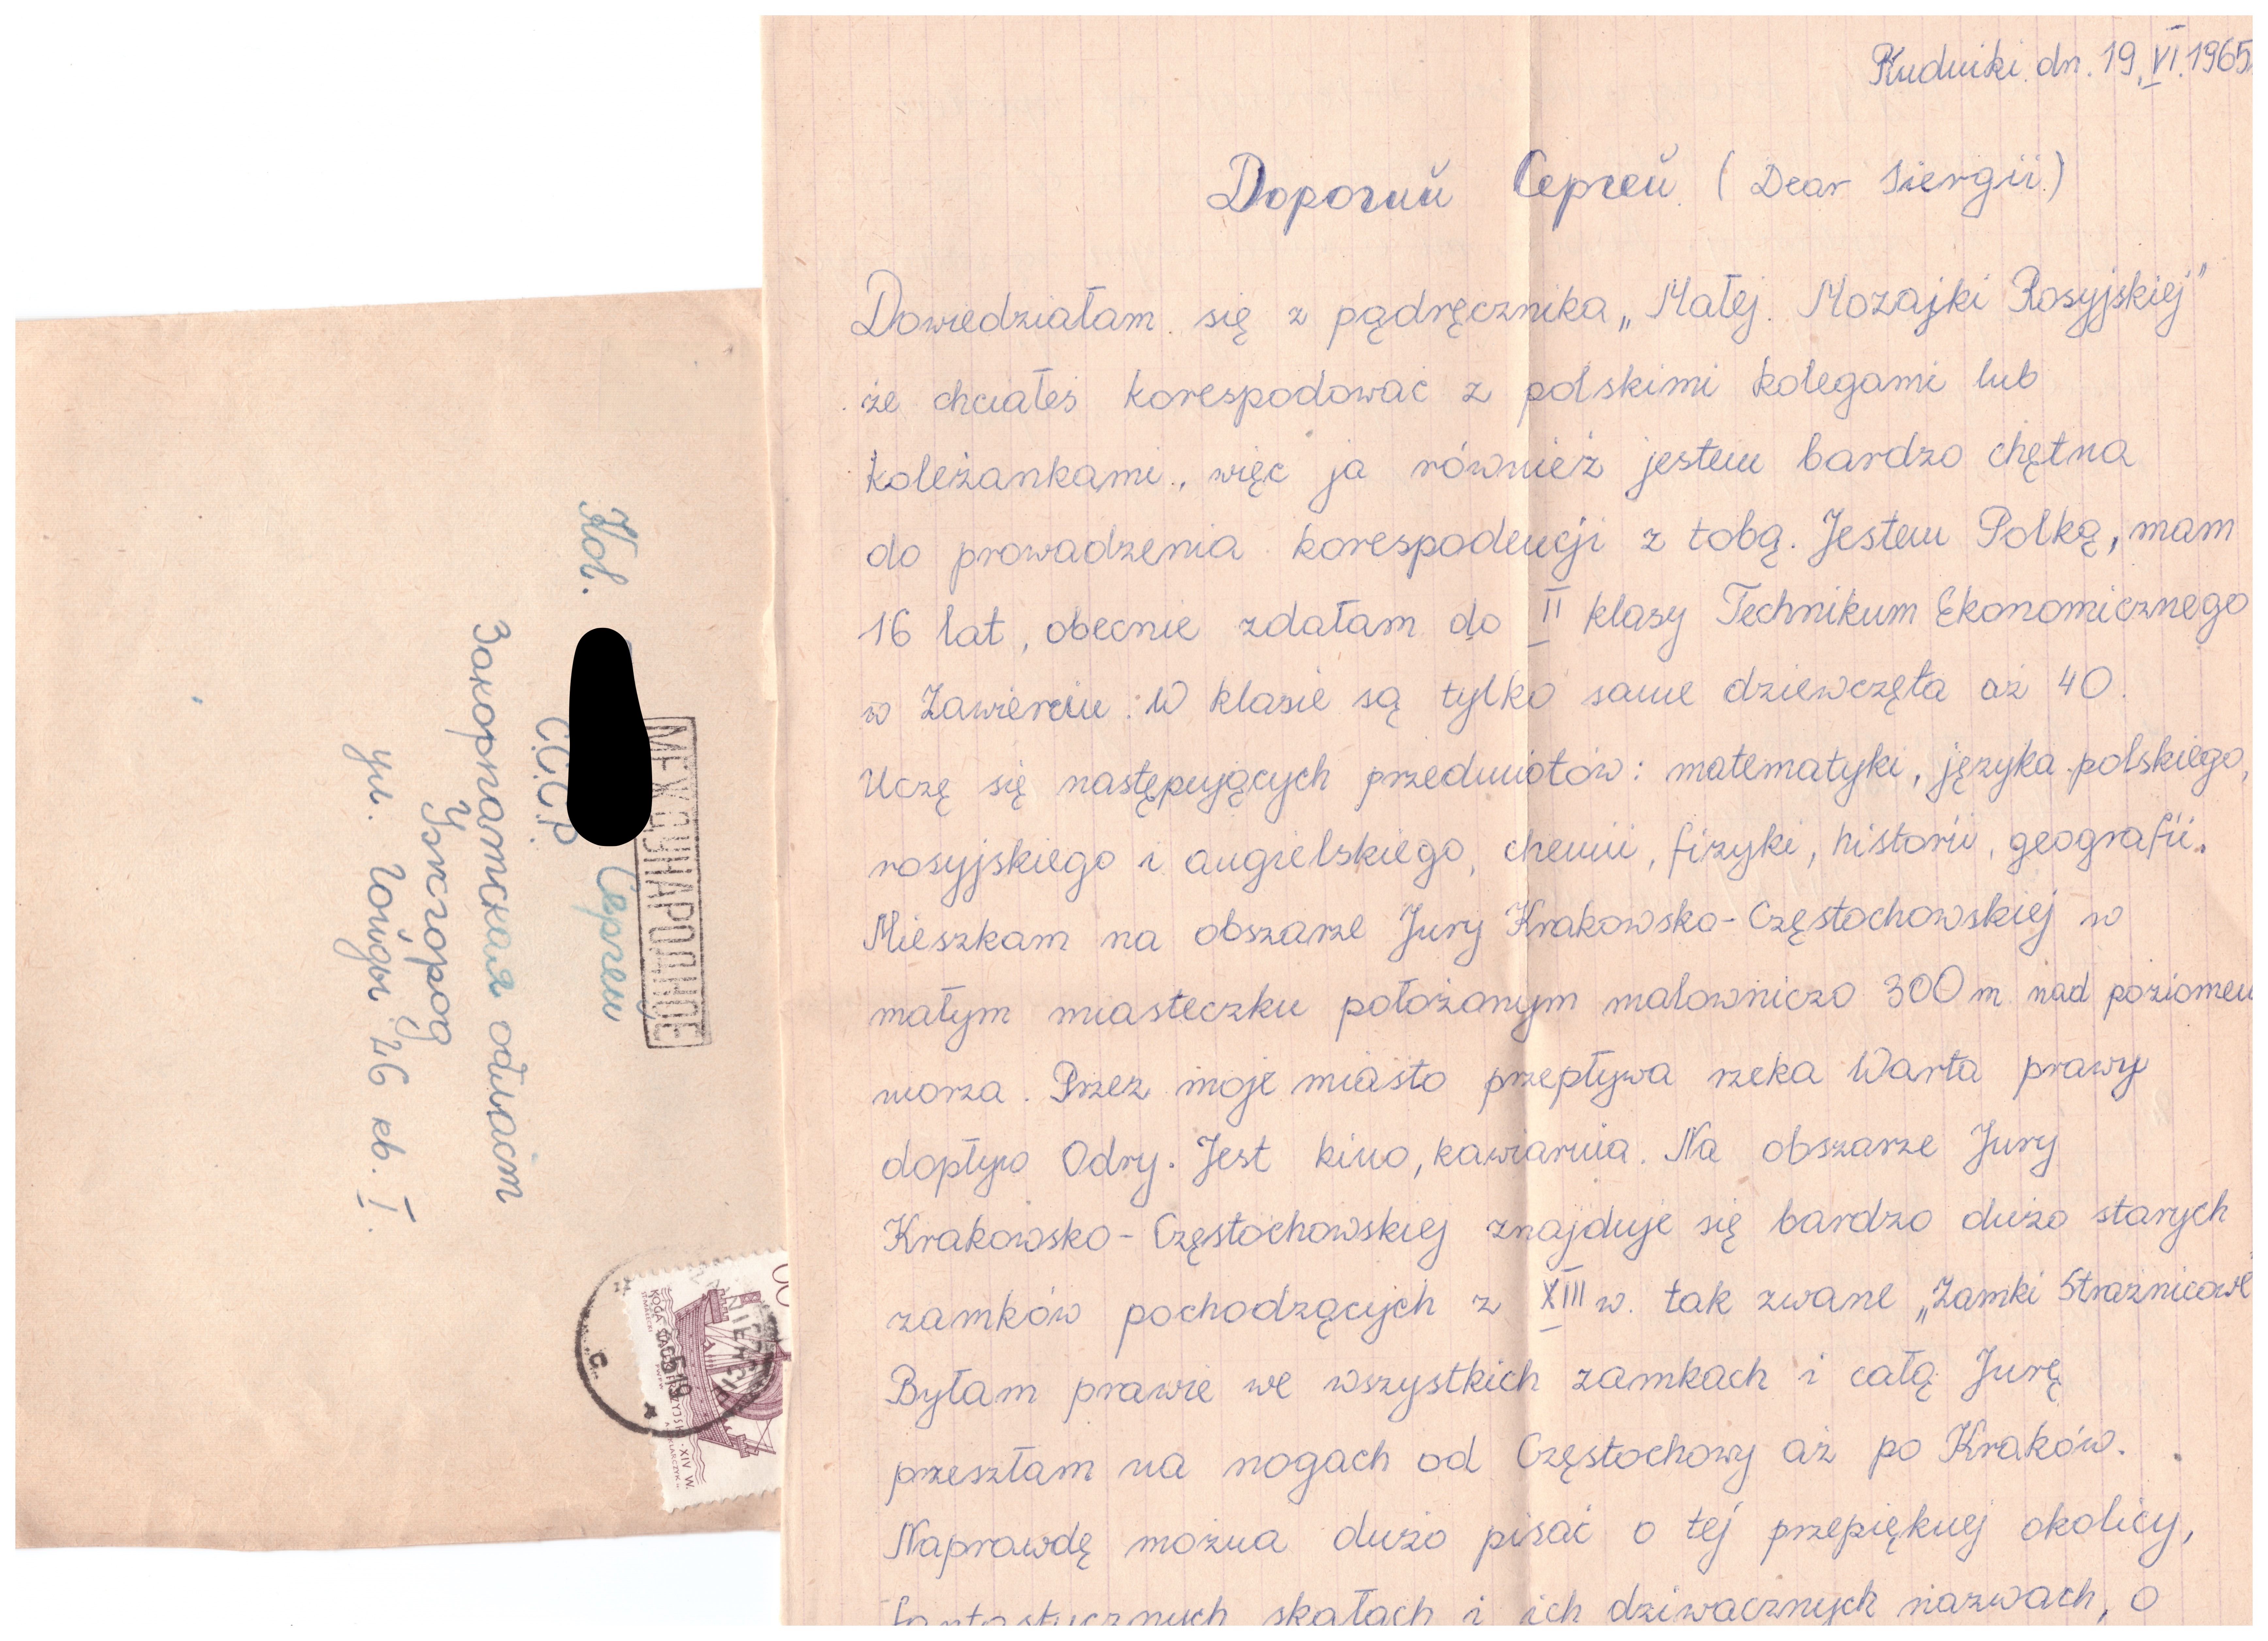 Kol. Сергей
С.С.С.Р.
Закарпатская область
Ужгород
ул. 26 кв. I.
МЕЖДУНАРОДНОЕ
KOGA
XIV W.
Rudniki dn. 19.VI.1965
Дорогий Сергей (Dear Siergii)
Dowiedziałam się z pądręcznika „Małej Mozajki Rosyjskiej"
że chciałeś korespodować z polskimi kolegami lub
koleżankami, więc ja również jestem bardzo chętna
do prowadzenia korespodencji z tobą. Jestem Polką, mam
16 lat, obecnie zdałam do II klasy Technikum Ekonomicznego
w Zawierciu. W klasie są tylko same dziewczęta aż 40.
Uczę się następujących przedmiotów: matematyki, języka polskiego,
rosyjskiego i angielskiego, chemii, fizyki, historii, geografii.
Mieszkam na obszarze Jury Krakowsko-Częstochowskiej w
małym miasteczku położonym malowniczo 300 m nad poziomem
morza. Przez moje miasto przepływa rzeka Warta prawy
dopływ Odry. Jest kino, kawiarnia. Na obszarze Jury
Krakowsko-Częstochowskiej znajduje się bardzo dużo starych
zamków pochodzących z XIII w. tak zwane „Zamki Strażnicowe"
Byłam prawie we wszystkich zamkach i całą Jurę
przeszłam na nogach od Częstochowy aż po Kraków.
Naprawdę można dużo pisać o tej przepięknej okolicy,
fantastycznych skałach i ich dziwacznych nazwach, o